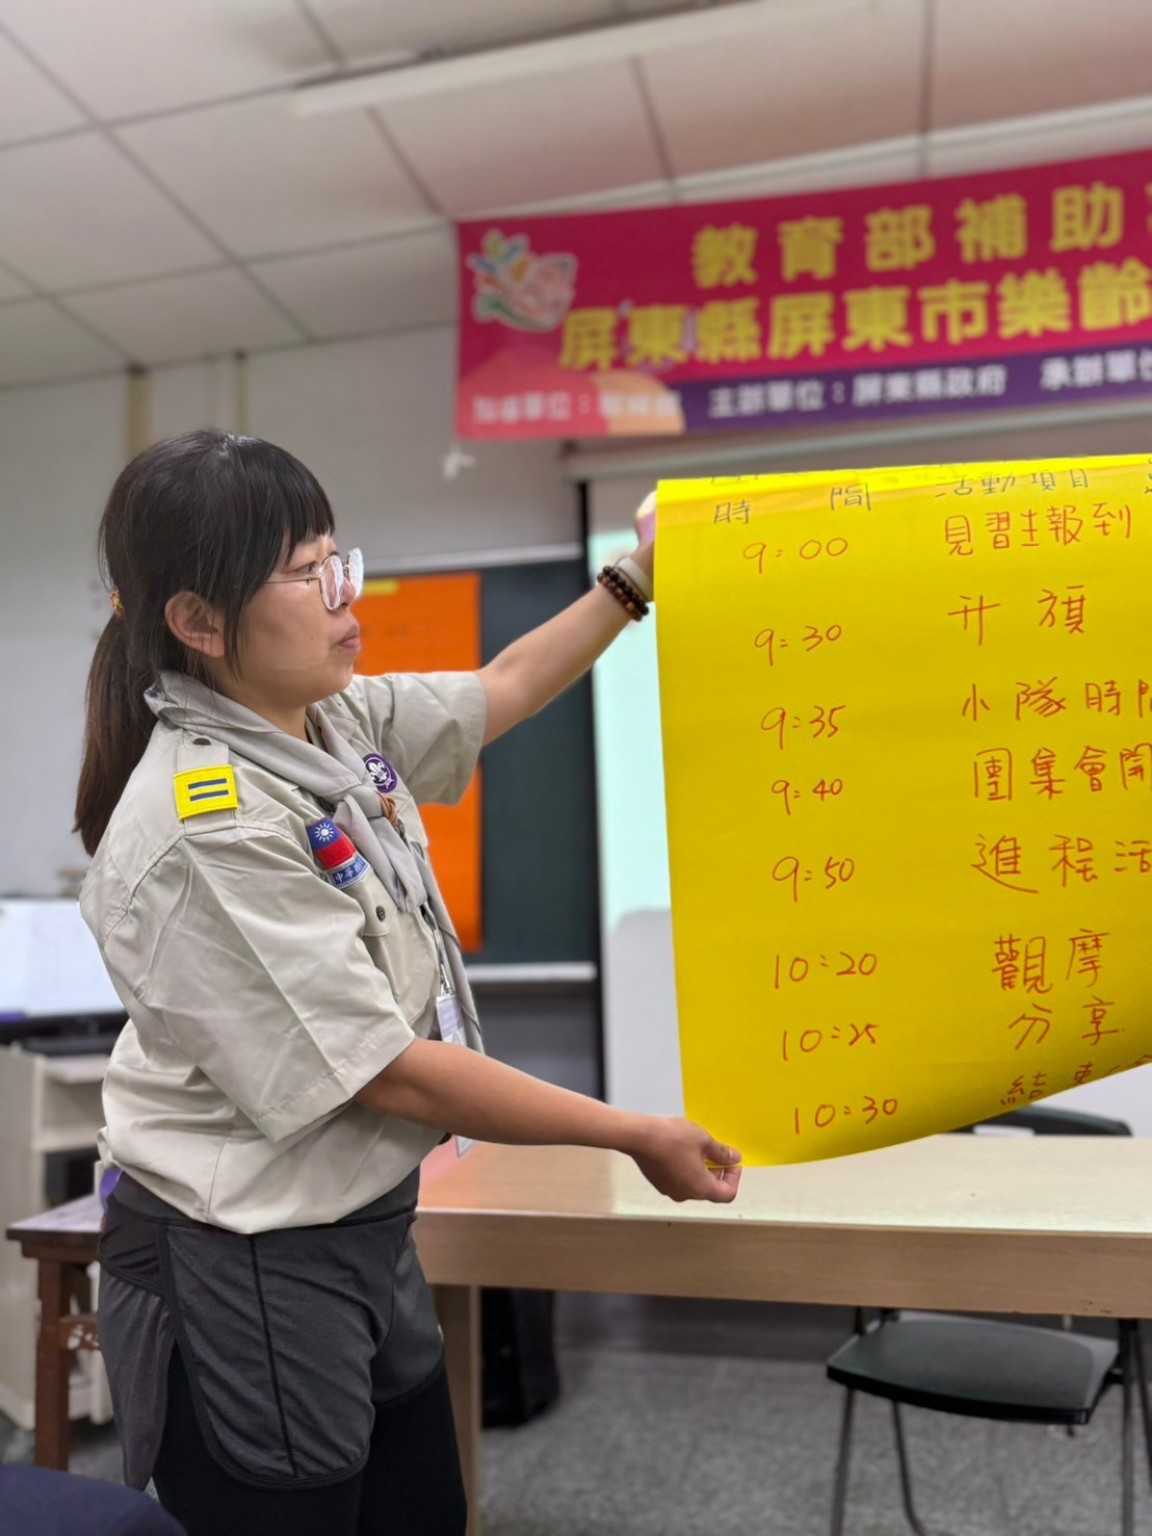 教育部補助
屏東縣屏東市樂齡
主辦單位：屏東縣政府 承辦單位
時 間 活動項目
9:00 見習生報到
9:30 升旗
9:35 小隊時間
9:40 團集會開
9:50 進程活
10:20 觀摩
10:25 分享
10:30 結束